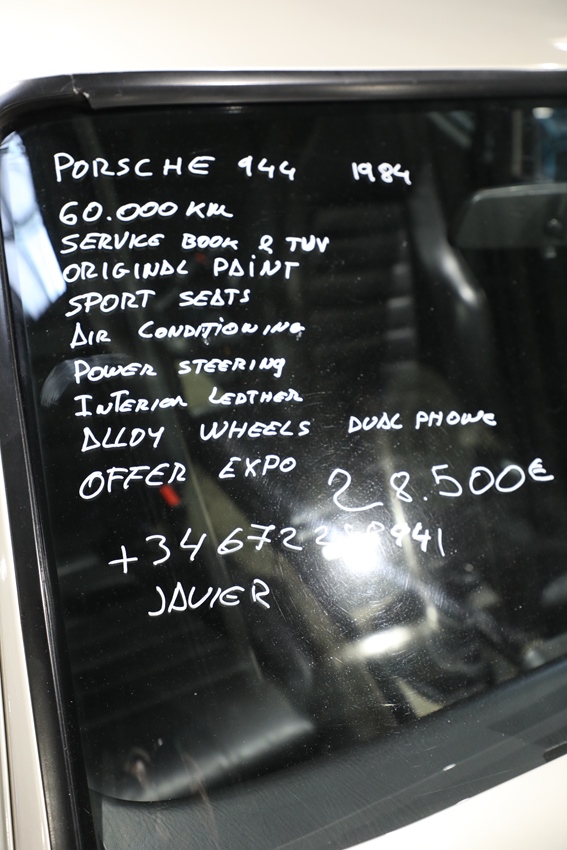 PORSCHE 944 1984
60.000 KM
SERVICE BOOK & TUV
ORIGINAL PAINT
SPORT SEATS
AIR CONDITIONING
POWER STEERING
INTERIOR LEATHER
ALLOY WHEELS DUAL PHONE
OFFER EXPO 28.500€
+34 672
JAVIER